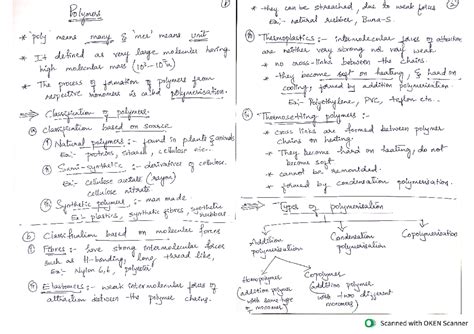 Polymers
* 'poly' means many & 'mer' means unit
* It defined as very large molecules having
high molecular mass (10³-10⁷u)
* The process of formation of polymers from
respective monomers is called polymerisation.
Classification of polymers:-
(a) Classification based on source
(1) Natural polymers :- found in plants & animals
Ex:- proteins, starch, cellulose etc..
(2) Semi-synthetic :- derivatives of cellulose.
Ex:-
cellulose acetate (rayon)
cellulose nitrate.
(3) Synthetic polymer :- man made
Ex:- plastics, synthetic fibres, synthetic
rubber
(b) Classification based on molecular forces
(1) Fibres :- have strong intermolecular forces
such as H-bonding, long thread like,
Ex:- Nylon 6,6, polyester
(2) Elastomers :- weak intermolecular forces of
attraction between the polymer chains.
* they can be streached, due to weak forces
Ex:- natural rubber, Buna-S.
(3) Thermoplastics :- intermolecular forces of attraction
are neither very strong nor very weak
* no cross-links between the chains.
* they become soft on heating, & hard on
cooling, formed by addition polymerisation.
Ex:- Polyethylene, PVC, teflon etc...
Thermosetting polymers :-
* cross links are formed between polymer
chains on heating.
* They become hard on heating, do not
become soft
* cannot be remoulded.
* formed by condensation polymerisation.
Types of polymerisation
Addition
polymerisation
Condensation
polymerisation
Copolymerisation
Homopolymer
(addition polymer
with same type
of monomer)
Copolymer
(addition polymer
with two different
monomers)
Scanned with OKEN Scanner